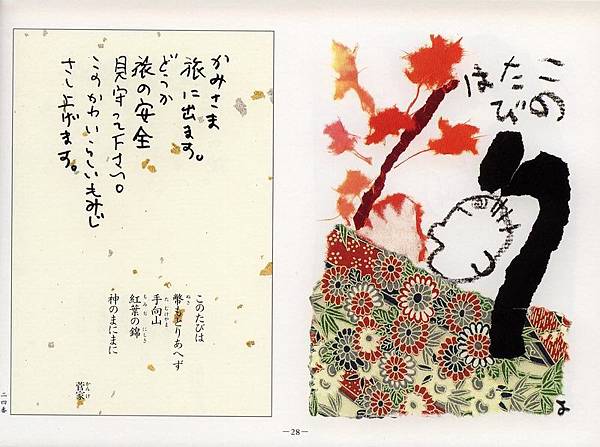 この
たび
は
かみさま
旅に出ます。
どうか
旅の安全
見守って下さい。
このかわいらしいもみじ
さし上げます。
このたびは
ぬさ
幣もとりあへず
たむけやま
手向山
もみぢ にしき
紅葉の錦
神のまにまに
かんけ
菅家
二四番
―28―